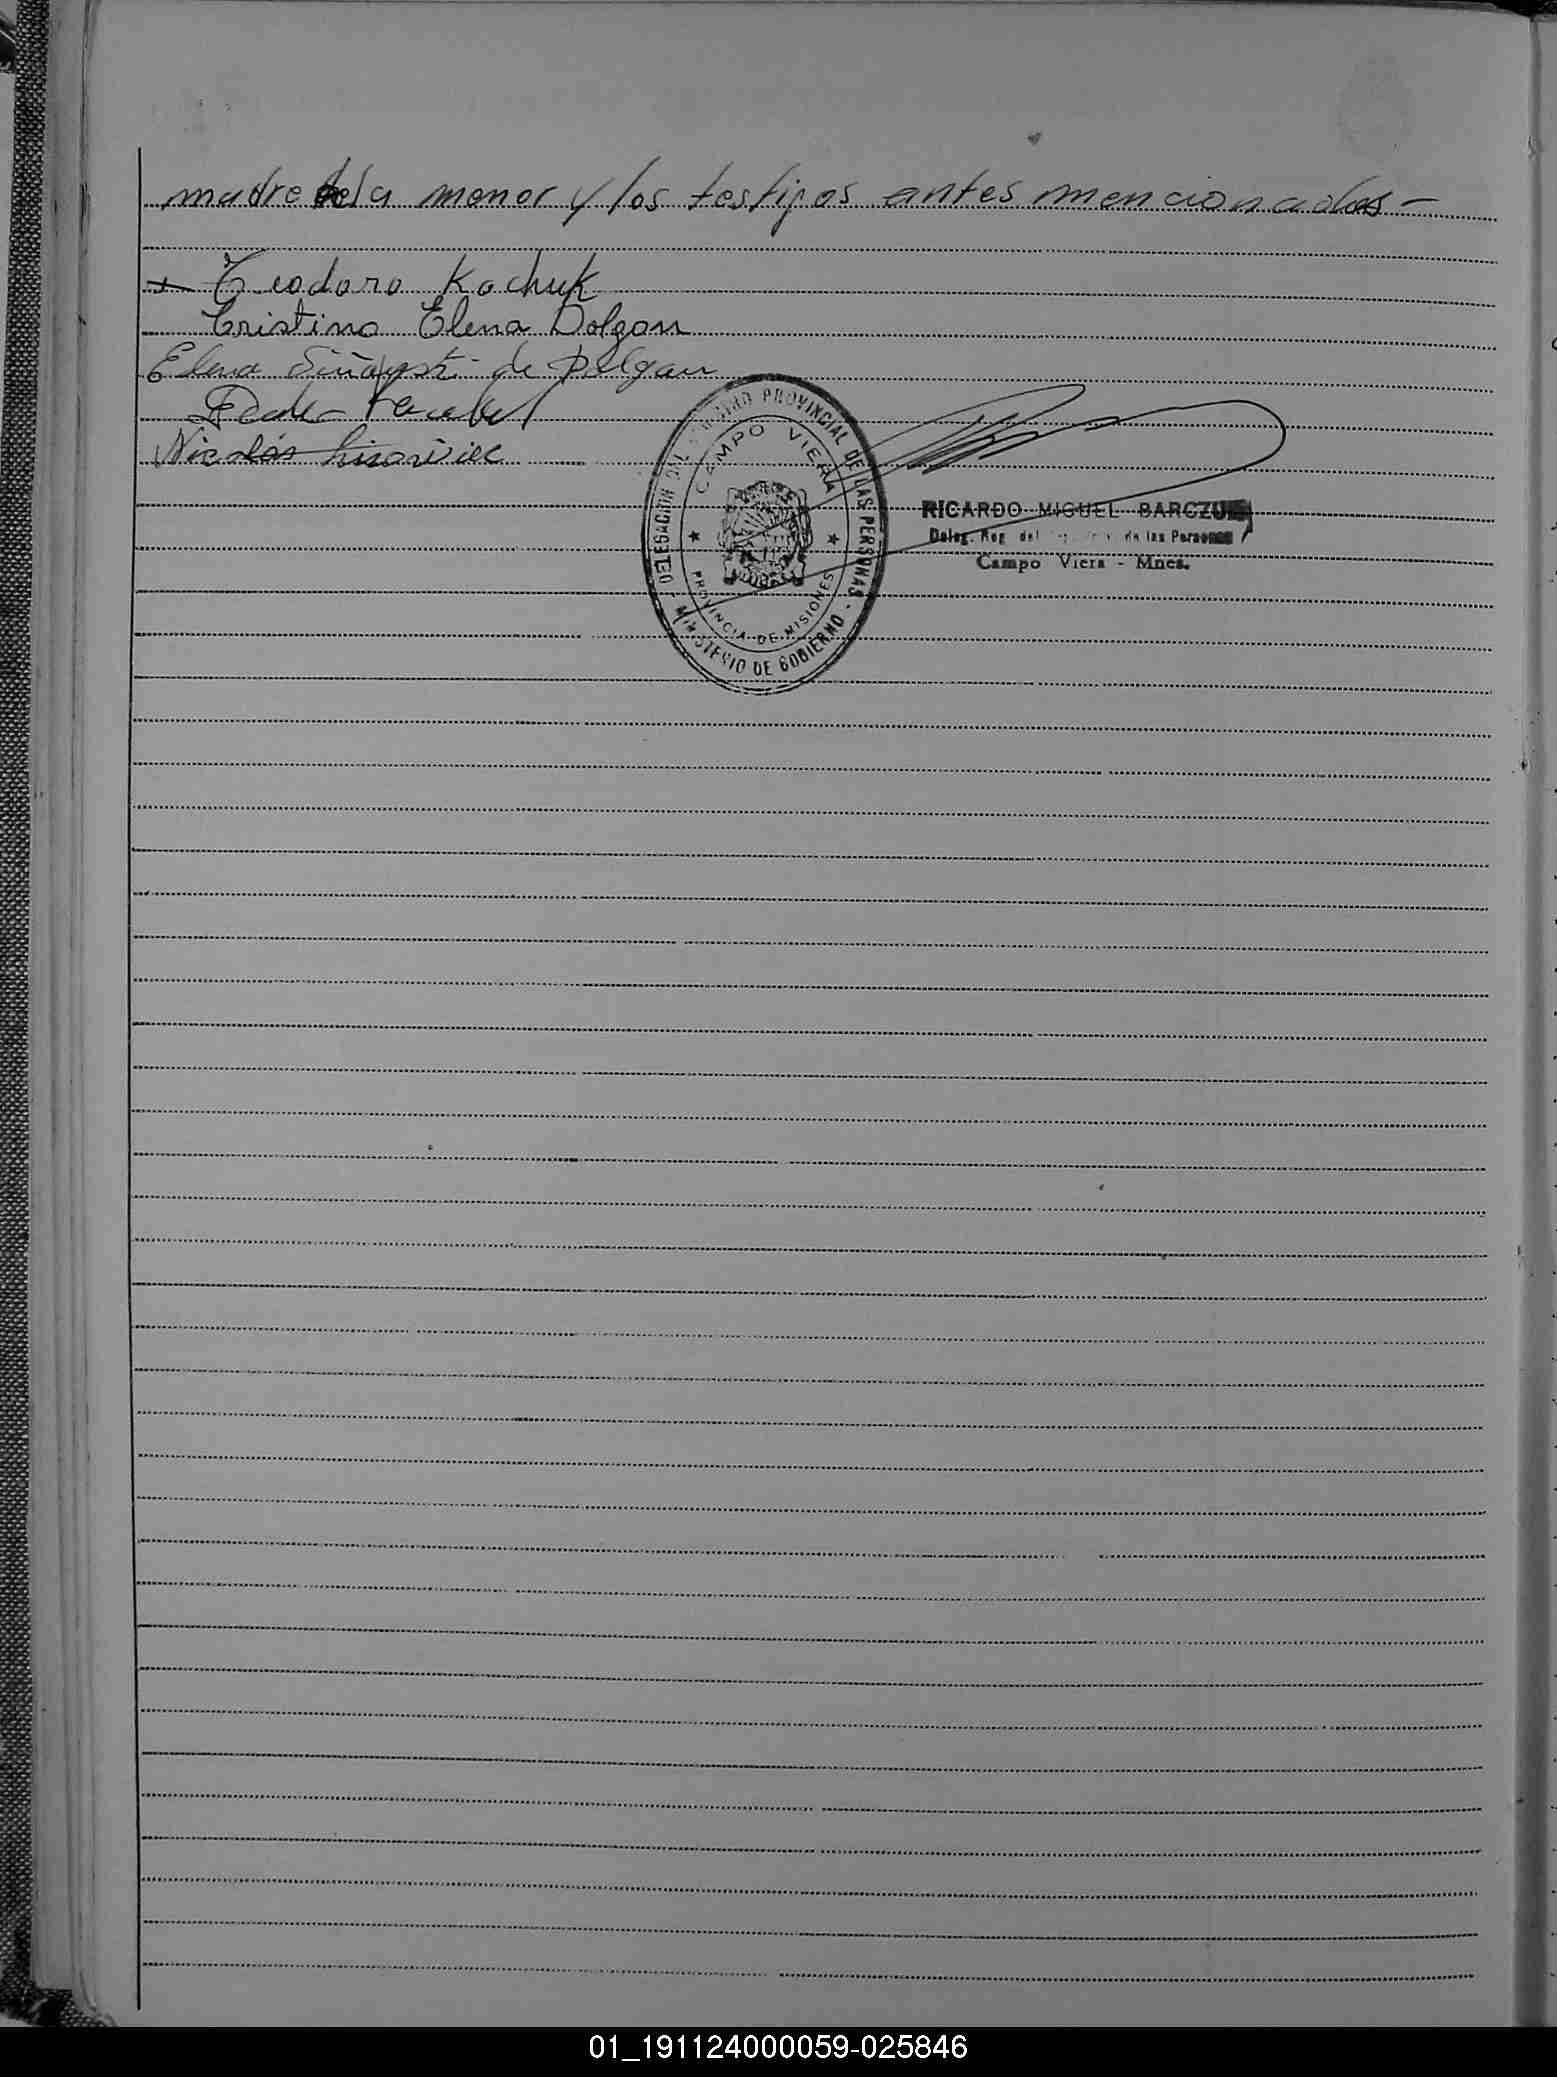 madre dela menor y los testigos antes mencionados-
Teodoro Kochuk
Cristina Elena Dolgan
Elena de Dolgan
Nicolás
DELEGACION DEL REGISTRO PROVINCIAL DE LAS PERSONAS -
MINISTERIO DE GOBIERNO -
CAMPO VIERA
PROVINCIA DE MISIONES
RICARDO MIGUEL
Deleg. Reg. del de las Personas
Campo Viera - Mnes.
01_191124000059-025846